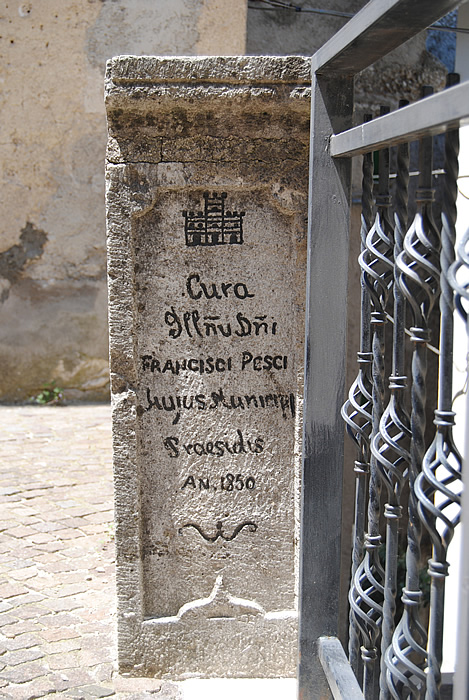 Cura
Illñu Dñi
FRANCISCI PESCI
hujus Municipj
Praesidis
AN. 1850